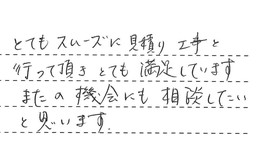 とてもスムーズに見積り 工事と
行って頂き とても 満足しています
またの機会にも 相談したい
と思います.